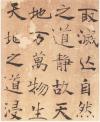 取滅亡自然
之道静故天
地万物生
天地之道浸